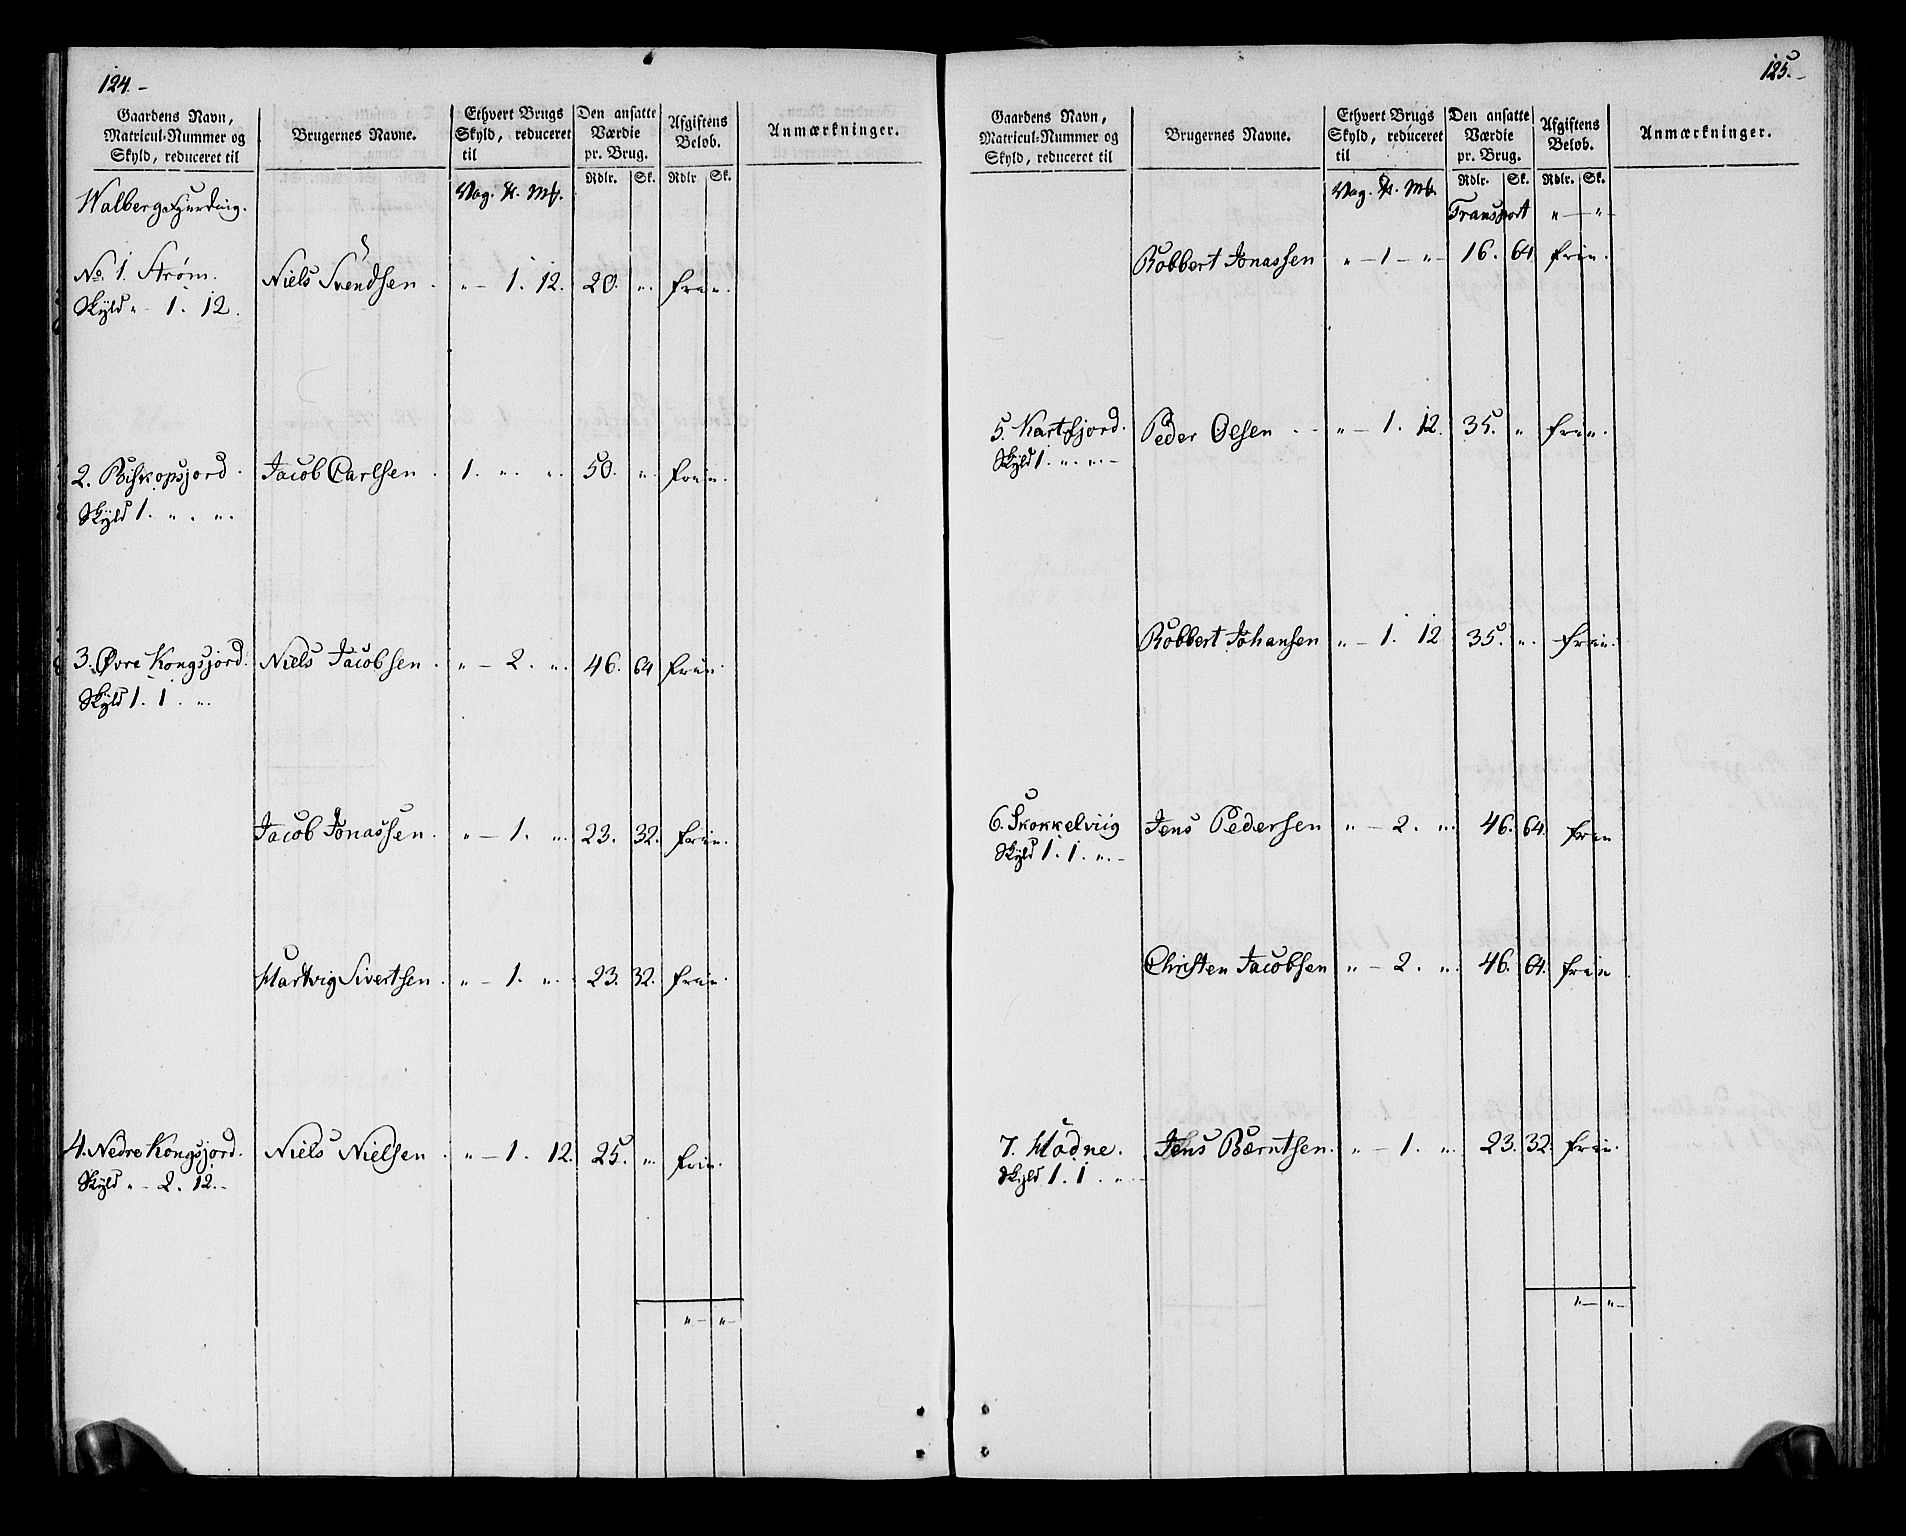 124.-
Gaardens Navn, Matricul-Nummer og Skyld, reduceret til
Brugernes Navne.
Ethvert Brugs Skyld, reduceret til
Den ansatte Værdie pr. Brug.
Afgiftens Beløb.
Anmærkninger.
Rdlr. Sk. Rdlr Sk.
Walberg Fjurding.
Vog. ℔. Mk.
No. 1. Strøm. Niels Svendsen. „ - 1. 12. 20. „. frie.
Skyld „ - 1. 12.
2. Biskopsjord. Jacob Carlsen. 1. „. „. 50. „. frie.
Skyld 1. „. „.
3. Øvre Kongsjord. Niels Jacobsen. „ - 2. „. 46. 64 frie.
Skyld 1. 1. „.
Jacob Jonassen. „ - 1. „. 23. 32. frie.
Hartvig Sivertsen. „ - 1. „. 23. 32. frie.
4. Nedre Kongsjord. Niels Nielsen. „ - 1. 12. 25. „. frie.
Skyld „ - 2. 12.-
„ - „ -
125.-
Gaardens Navn, Matricul-Nummer og Skyld, reduceret til
Brugernes Navne.
Ethvert Brugs Skyld, reduceret til
Den ansatte Værdie pr. Brug.
Afgiftens Beløb.
Anmærkninger.
Rdlr. Sk. Rdlr. Sk.
Vog. ℔. Mk.
Transport „ - „ -
Robbert Jonassen „ - 1 - „ - 16. 64 frie.
5. Kartfjord. Peder Oesen - - „ - 1. 12. 35. „ frie.
Skyld 1. „. „. -
Robbert Johansen „ - 1. 12 35. „. frie.
6. Skokkelviig Jens Pedersen „ - 2. „. 46. 64. frie
Skyld 1. 1. „. -
Christen Jacobsen „ - 2. „. 46. 64. frie.
7. Hadne. Jens Bærntsen. „ - 1. „. 23. 32. frie.
Skyld 1. 1. „ -
„ - „ -